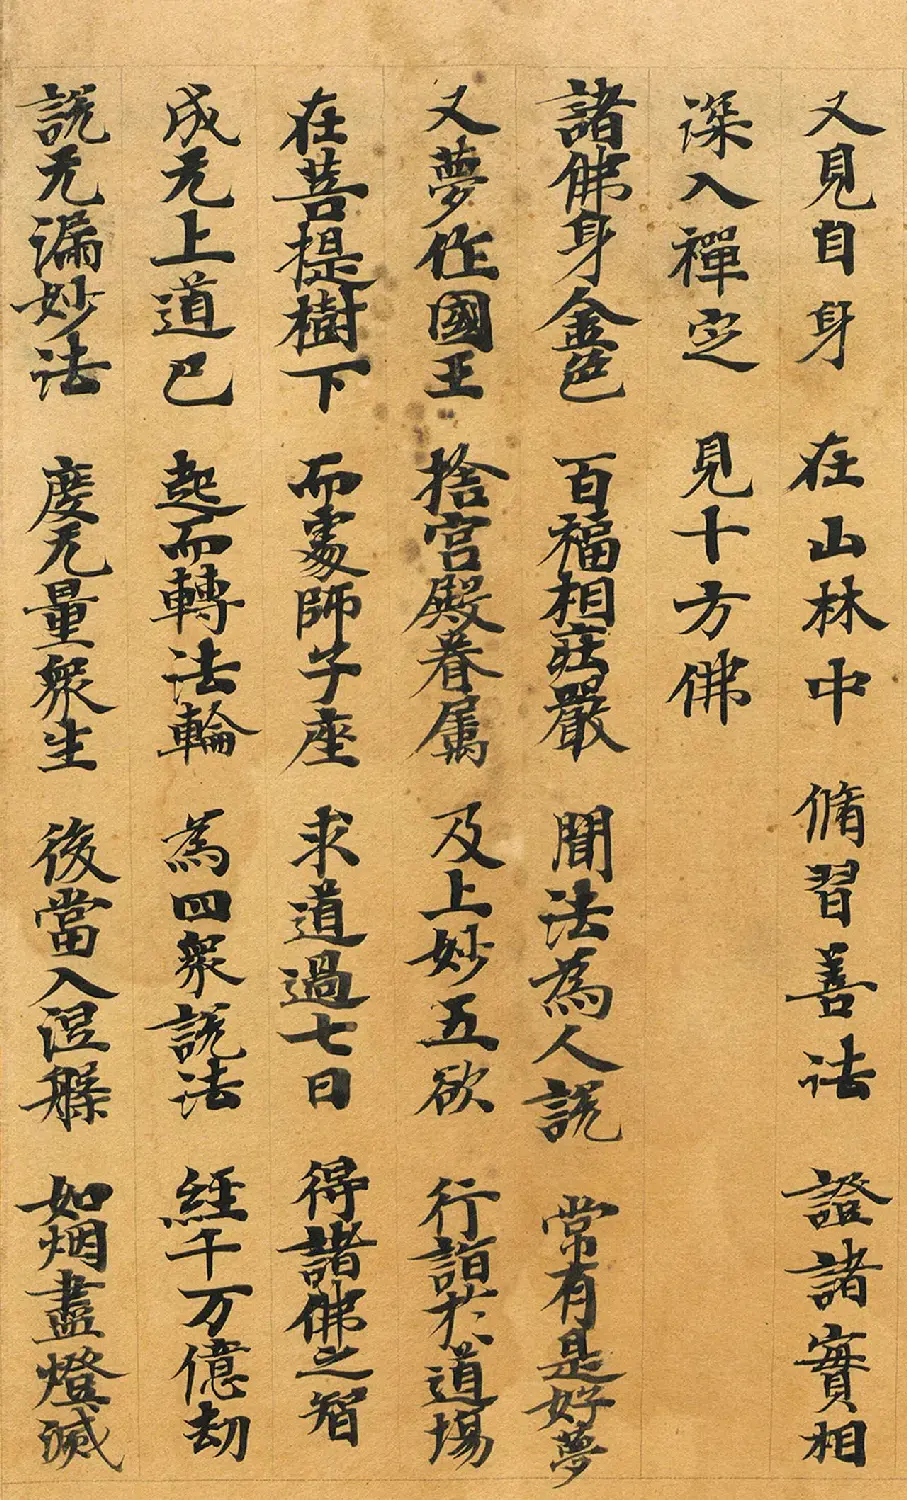 又見自身 在山林中 脩習善法 證諸實相
深入禪定 見十方佛
諸佛身金色 百福相莊嚴 聞法為人說 常有是好夢
又夢作國王 捨宮殿眷属 及上妙五欲 行詣於道場
在菩提樹下 而處師子座 求道過七日 得諸佛之智
成无上道已 起而轉法輪 為四衆說法 經千万億劫
說无漏妙法 度无量衆生 後當入涅槃 如烟盡燈滅